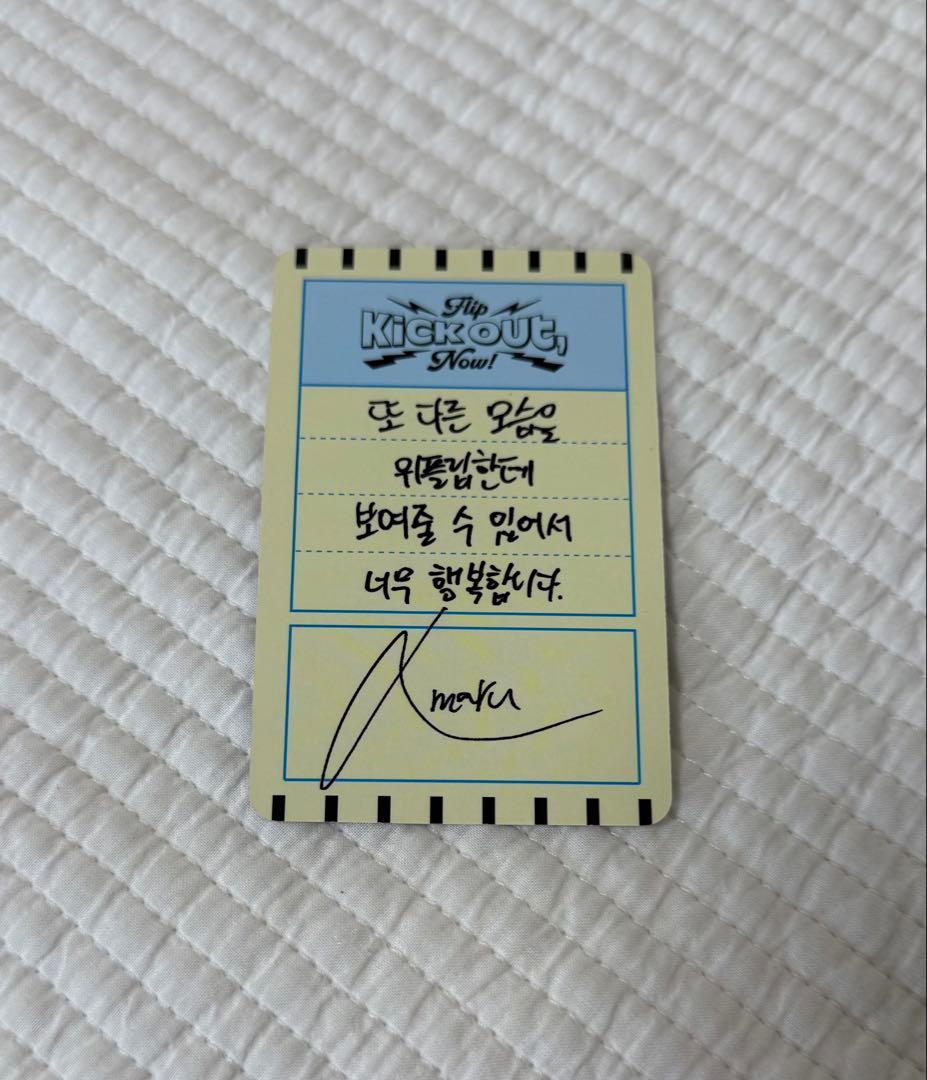 Flip
KicK OUt,
Now!
또 다른 모습을
위플립한테
보여줄 수 있어서
너무 행복합니다.
maru